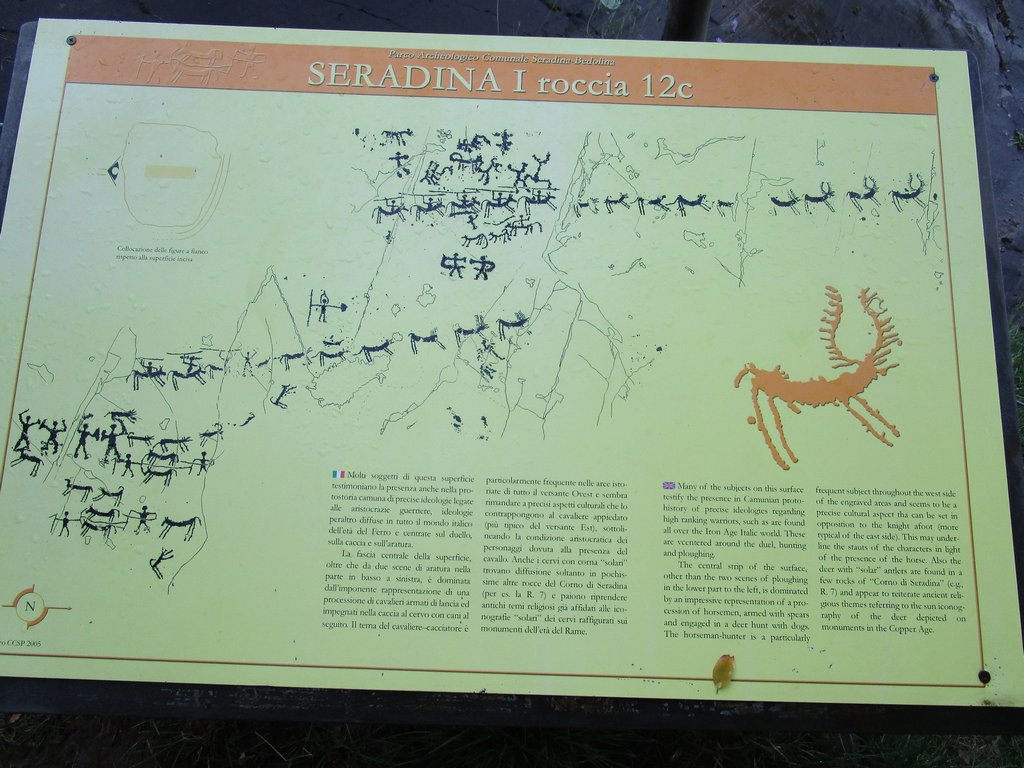 Parco Archeologico Comunale Seradina-Bedolina
SERADINA I roccia 12c
Collocazione delle figure a fianco
rispetto alla superficie incisa
Molti soggetti di questa superficie
testimoniano la presenza anche nella pro-
tostoria camuna di precise ideologie legate
alle aristocrazie guerriere, ideologie
peraltro diffuse in tutto il mondo italico
dell'età del Ferro e centrate sul duello,
sulla caccia e sull'aratura.
La fascia centrale della superficie,
oltre che da due scene di aratura nella
parte in basso a sinistra, è dominata
dall'imponente rappresentazione di una
processione di cavalieri armati di lancia ed
impegnati nella caccia al cervo con cani al
seguito. Il tema del cavaliere-cacciatore è
particolarmente frequente nelle aree isto-
riate di tutto il versante Ovest e sembra
rimandare a precisi aspetti culturali che lo
contrappongono al cavaliere appiedato
(più tipico del versante Est), sottoli-
neando la condizione aristocratica dei
personaggi dovuta alla presenza del
cavallo. Anche i cervi con corna "solari"
trovano diffusione soltanto in pochis-
sime altre rocce del Corno di Seradina
(per es. la R. 7) e paiono riprendere
antichi temi religiosi già affidati alle ico-
nografie "solari" dei cervi raffigurati sui
monumenti dell'età del Rame.
Many of the subjects on this surface
testify the presence in Camunian proto-
history of precise ideologies regarding
high ranking warriors, such as are found
all over the Iron Age Italic world. These
are vcentered around the duel, hunting
and ploughing.
The central strip of the surface,
other than the two scenes of ploughing
in the lower part to the left, is dominated
by an impressive representation of a pro-
cession of horsemen, armed with spears
and engaged in a deer hunt with dogs.
The horseman-hunter is a particularly
frequent subject throughout the west side
of the engraved areas and seems to be a
precise cultural aspect tha can be set in
opposition to the knight afoot (more
typical of the east side). This may under-
line the stauts of the characters in light
of the presence of the horse. Also the
deer with "solar" antlers are found in a
few rocks of "Corno di Seradina" (e.g.,
R. 7) and appear to reiterate ancient reli-
gious themes referring to the sun iconog-
raphy of the deer depicted on
monuments in the Copper Age.
N
CCSP 2005